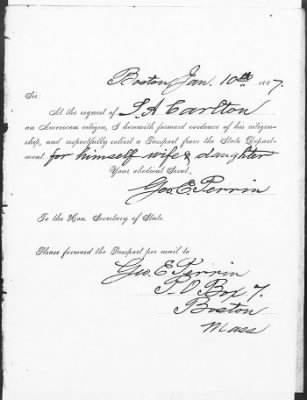 Boston, Jan. 10th 1887.
Sir:
At the request of S. A. Carlton
an American citizen, I herewith forward evidence of his citizen-
ship, and respectfully solicit a Passport from the State Depart-
ment for himself wife & daughter
Your obedient Serv't,
Geo. E. Perrin
To the Hon. Secretary of State.
Please forward the Passport per mail to
Geo. E. Perrin
P. O Box 7.
Boston
Mass